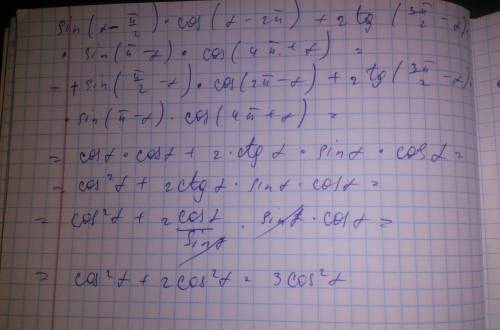 sin(α - π/2) · cos(α - 2π) + 2 tg(3π/2 - α) ·
· sin(π - α) · cos(4π + α) =
= + sin(π/2 - α) · cos(2π - α) + 2 tg(3π/2 - α) ·
· sin(π - α) · cos(4π + α) =
= cosα · cosα + 2 · ctgα · sinα · cosα =
= cos²α + 2ctgα · sinα · cosα =
= cos²α + 2 cosα/sinα · sinα · cosα =
= cos²α + 2cos²α = 3cos²α